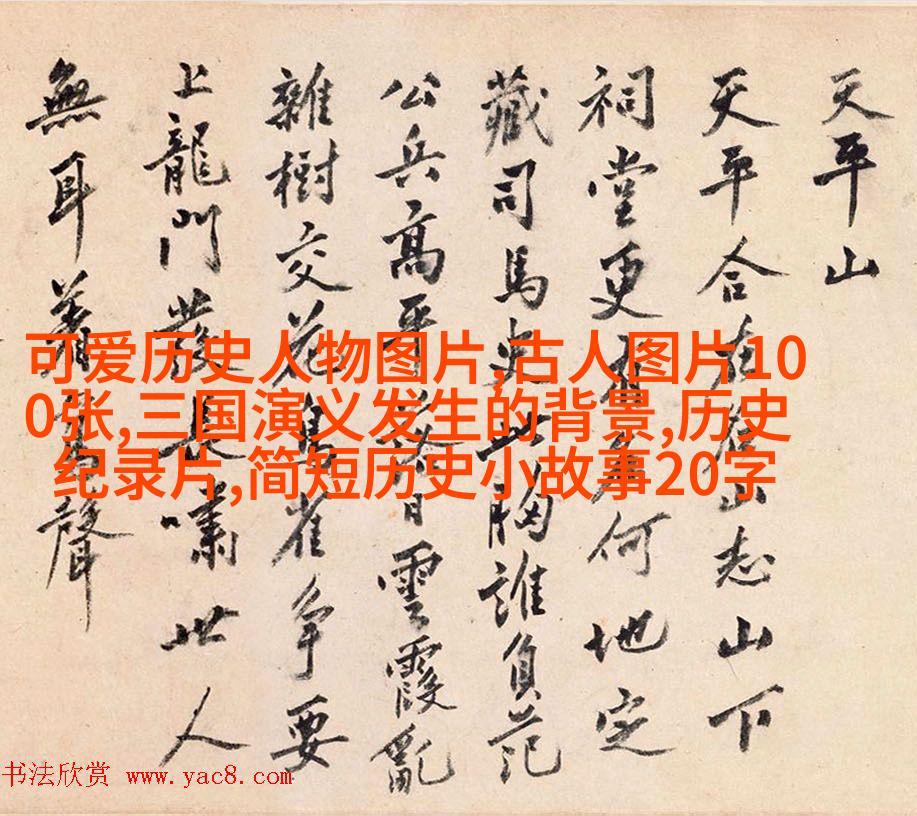 天平山
天平合在山志山下
祠堂更何地定
藏司馬史此胸誰負范
公兵高日雲霞亂
雜樹交花雀争要
上龍門發長嘯世人
無耳着聲
可爱历史人物图片,古人图片10
0张,三国演义发生的背景,历史
纪录片,简短历史小故事20字
书法欣赏 www.yac8.com